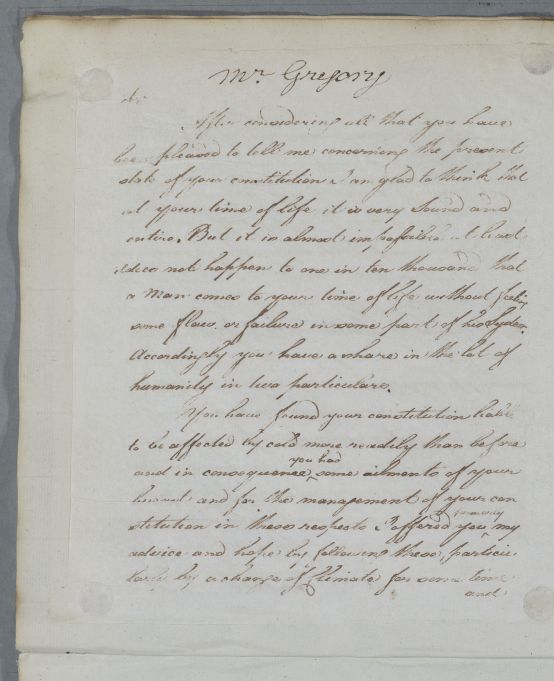 Mr. Gregory
Sir
After considering all that you have
been pleased to tell me concerning the present
state of your constitution I am glad to think that
at your time of life it is very sound and
entire. But it is almost impossible at least
it does not happen to one in ten thousand that
a Man comes to your time of life without feeling
some flaw or failure in some part of his System.
Accordingly you have a share in the lot of
humanity in two particulars.
You have found your constitution liable
to be affected by cold more readily than before
you had
and in consequence, some ailments of your
and for the management of your con
formerly
stitution in these respects I offered you my
advice and hope by following these, particu
larly by a change of Climate for some time
and